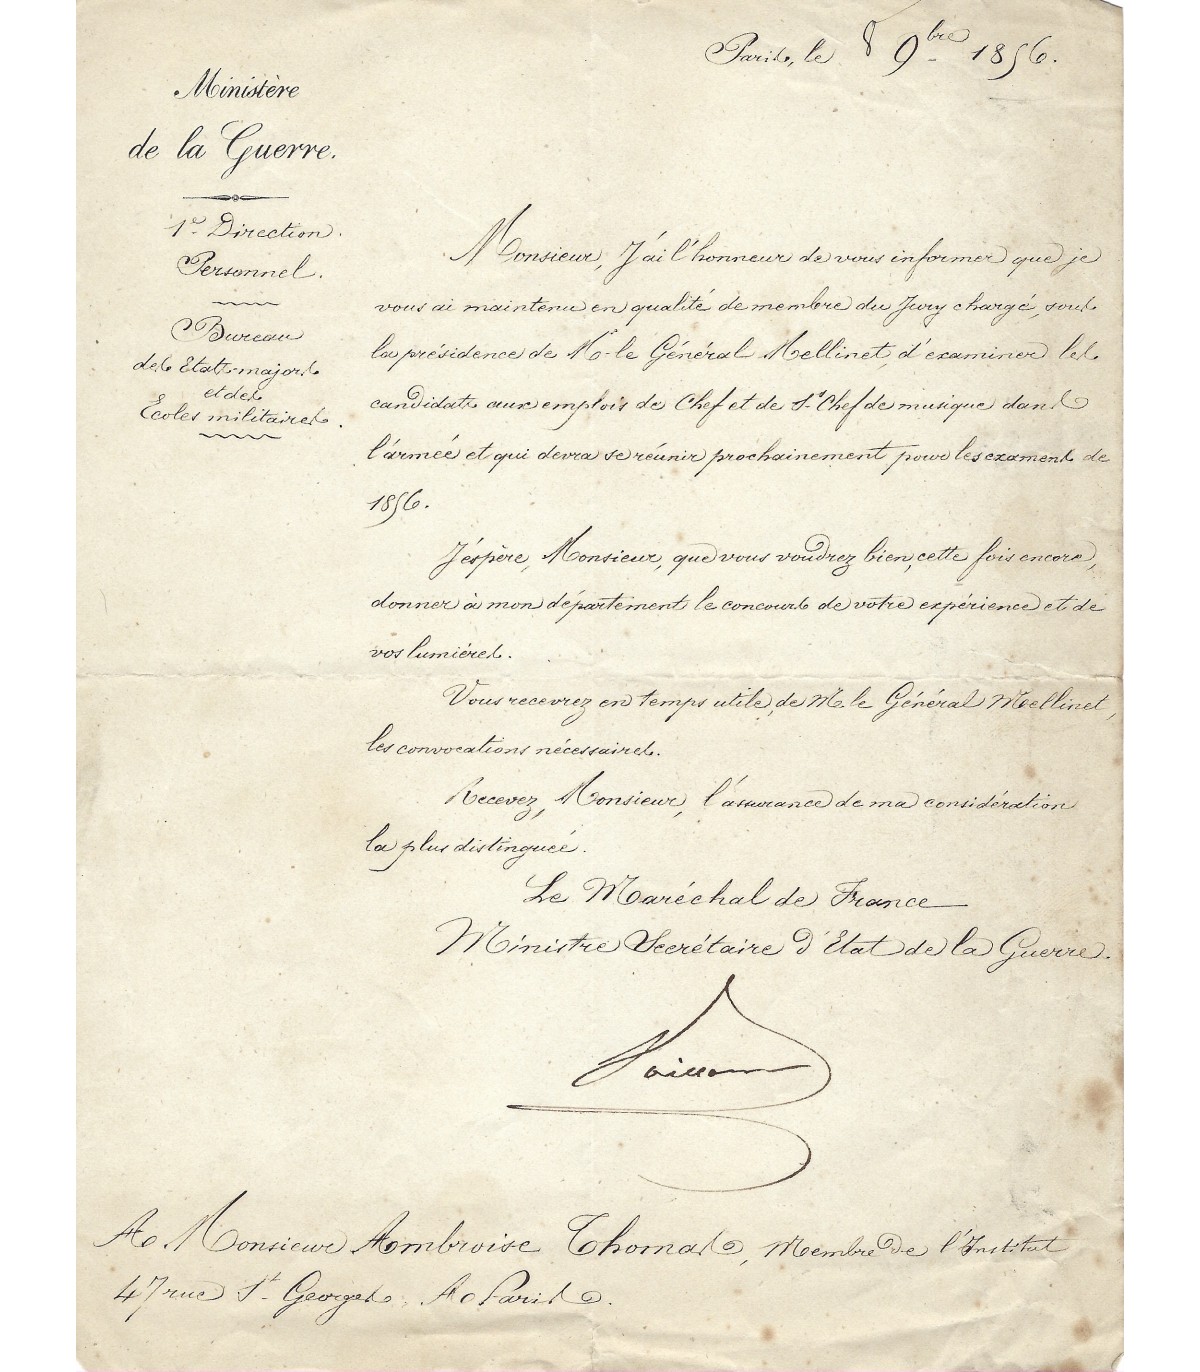 Paris, le 8 9bre 1856.
Ministère
de la Guerre.
1e Direction.
Personnel.
Bureau
des Etats-majors
et des
Écoles militaires.
Monsieur, J'ai l'honneur de vous informer que je
vous ai maintenu en qualité de membre du Jury chargé, sous
la présidence de Mr le Général Mellinet, d'examiner les
candidats aux emplois de Chef et de S.Chef de musique dans
l'armée et qui devra se réunir prochainement pour les examens de
1856.
J'espère, Monsieur, que vous voudrez bien, cette fois encore,
donner à mon département le concours de votre expérience et de
vos lumières.
Vous recevrez en temps utile, de M. le Général Mellinet,
les convocations nécessaires.
Recevez, Monsieur, l'assurance de ma considération
la plus distinguée.
Le Maréchal de France
Ministre Secrétaire d'Etat de la Guerre.
Vaillant
A Monsieur Ambroise Thomas, Membre de l'Institut
47 rue St Georges, A Paris.